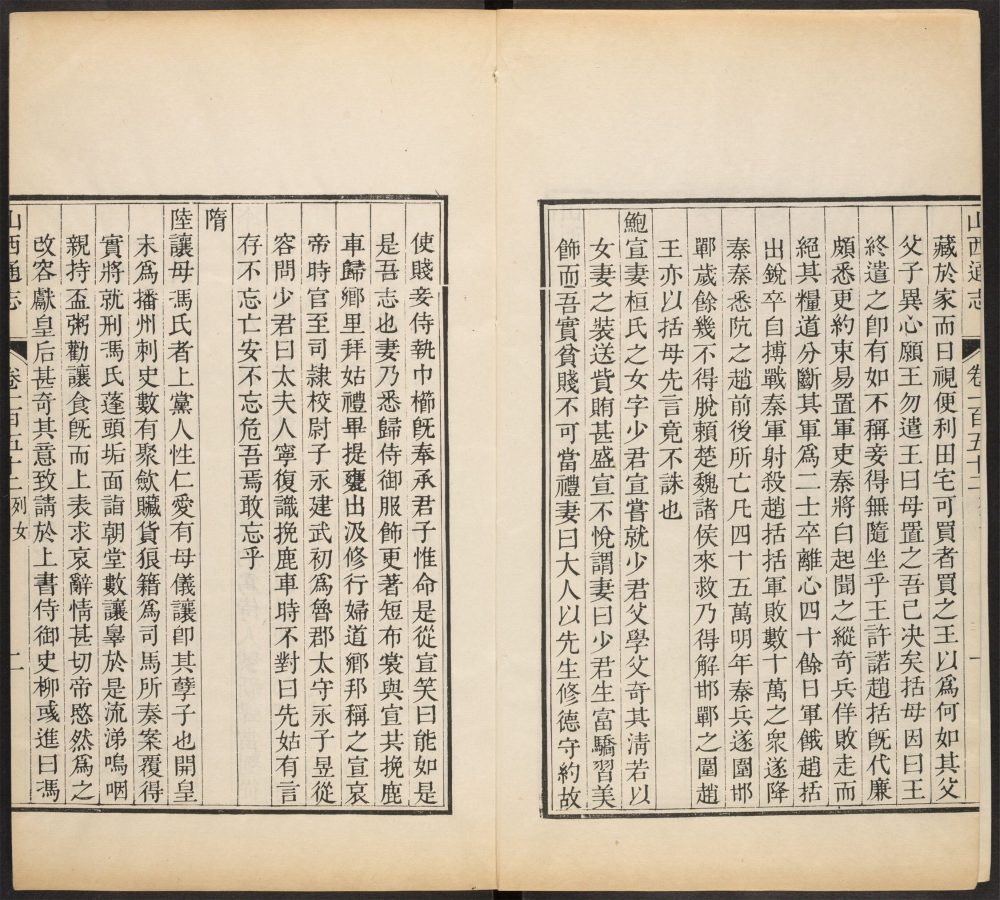 山西通志 卷一百五十二 一
藏於家而日視便利田宅可買者買之王以爲何如其父
父子異心願王勿遣王曰母置之吾已决矣括母因曰王
終遣之卽有如不稱妾得無隨坐乎王許諾趙括旣代廉
頗悉更約束易置軍吏秦將白起聞之縱奇兵佯敗走而
絕其糧道分斷其軍爲二士卒離心四十餘日軍餓趙括
出銳卒自搏戰秦軍射殺趙括括軍敗數十萬之衆遂降
秦秦悉阬之趙前後所亡凡四十五萬明年秦兵遂圍邯
鄲歲餘幾不得脫賴楚魏諸侯來救乃得解邯鄲之圍趙
王亦以括母先言竟不誅也
鮑宣妻桓氏之女字少君宣嘗就少君父學父奇其淸若以
女妻之裝送貲賄甚盛宣不悅謂妻曰少君生富驕習美
飾而吾實貧賤不可當禮妻曰大人以先生修德守約故
使賤妾侍執巾櫛旣奉承君子惟命是從宣笑曰能如是
是吾志也妻乃悉歸侍御服飾更著短布裳與宣共挽鹿
車歸鄕里拜姑禮畢提甕出汲修行婦道鄕邦稱之宣哀
帝時官至司隷校尉子永建武初爲魯郡太守永子昱從
容問少君曰太夫人寧復識挽鹿車時不對曰先姑有言
存不忘亡安不忘危吾焉敢忘乎
隋
陸讓母馮氏者上黨人性仁愛有母儀讓卽其孽子也開皇
末爲播州刺史數有聚歛贓貨狼籍爲司馬所奏案覆得
實將就刑馮氏蓬頭垢面詣朝堂數讓辠於是流涕嗚咽
親持盃粥勸讓食旣而上表求哀辭情甚切帝愍然爲之
改容獻皇后甚奇其意致請於上書侍御史柳彧進曰馮
山西通志 卷一百五十二 列女 二